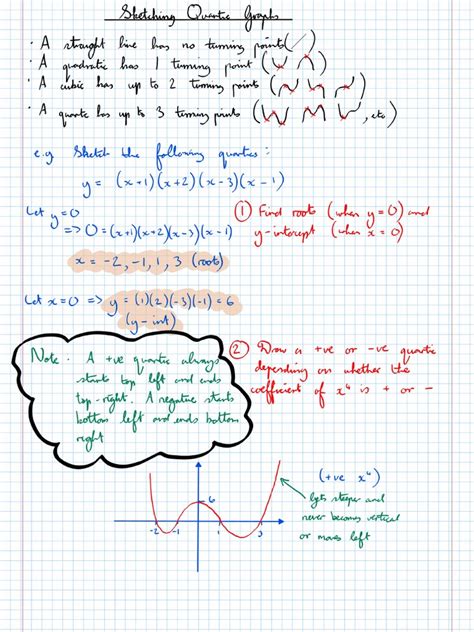 Sketching Quartic Graphs
· A straight line has no turning points (
· A quadratic has 1 turning point (
· A cubic has up to 2 turning points (
· A quartic has up to 3 turning points ( , etc)
e.g Sketch the following quartics:
y = (x+1)(x+2)(x-3)(x-1)
Let y=0
=> 0=(x+1)(x+2)(x-3)(x-1)
x = -2, -1, 1, 3 (roots)
① Find roots (when y=0) and
y-intercept (when x=0)
Let x=0 => y=(1)(2)(-3)(-1)=6
(y-int)
Note: A +ve quartic always
starts top left and ends
top-right. A negative starts
bottom left and ends bottom
right
② Draw a +ve or -ve quartic
depending on whether the
coefficient of x⁴ is + or -
(+ve x⁴)
gets steeper and
never becomes vertical
or moves left
6
-2 -1 1 3